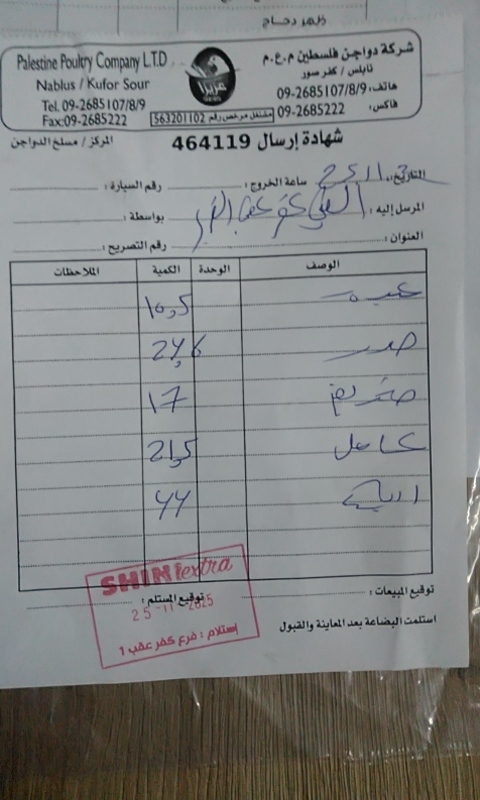 ظهر دجاج
Palestine Poultry Company L.T.D
Nablus / Kufor Sour
Tel. 09-2685107/8/9
Fax:09-2685222
عزيزا
مشتغل مرخص رقم 563201102
شركة دواجن فلسطين م.ع.م
نابلس / كفر صور
هاتف: 09-2685107/8/9
فاكس: 09-2685222
شهادة إرسال 464119
المركز / مسلخ الدواجن
التاريخ: 25.11 ساعة الخروج: رقم السيارة:
المرسل إليه: بواسطة:
العنوان: رقم التصريح:
الوصف الوحدة الكمية الملاحظات
16,5
صدر 24,6
17
كامل 21,5
44
توقيع المبيعات: توقيع المستلم:
استلمت البضاعة بعد المعاينة والقبول
SHINI extra
25-11-2025
إستلام: فرع كفر عقب 1